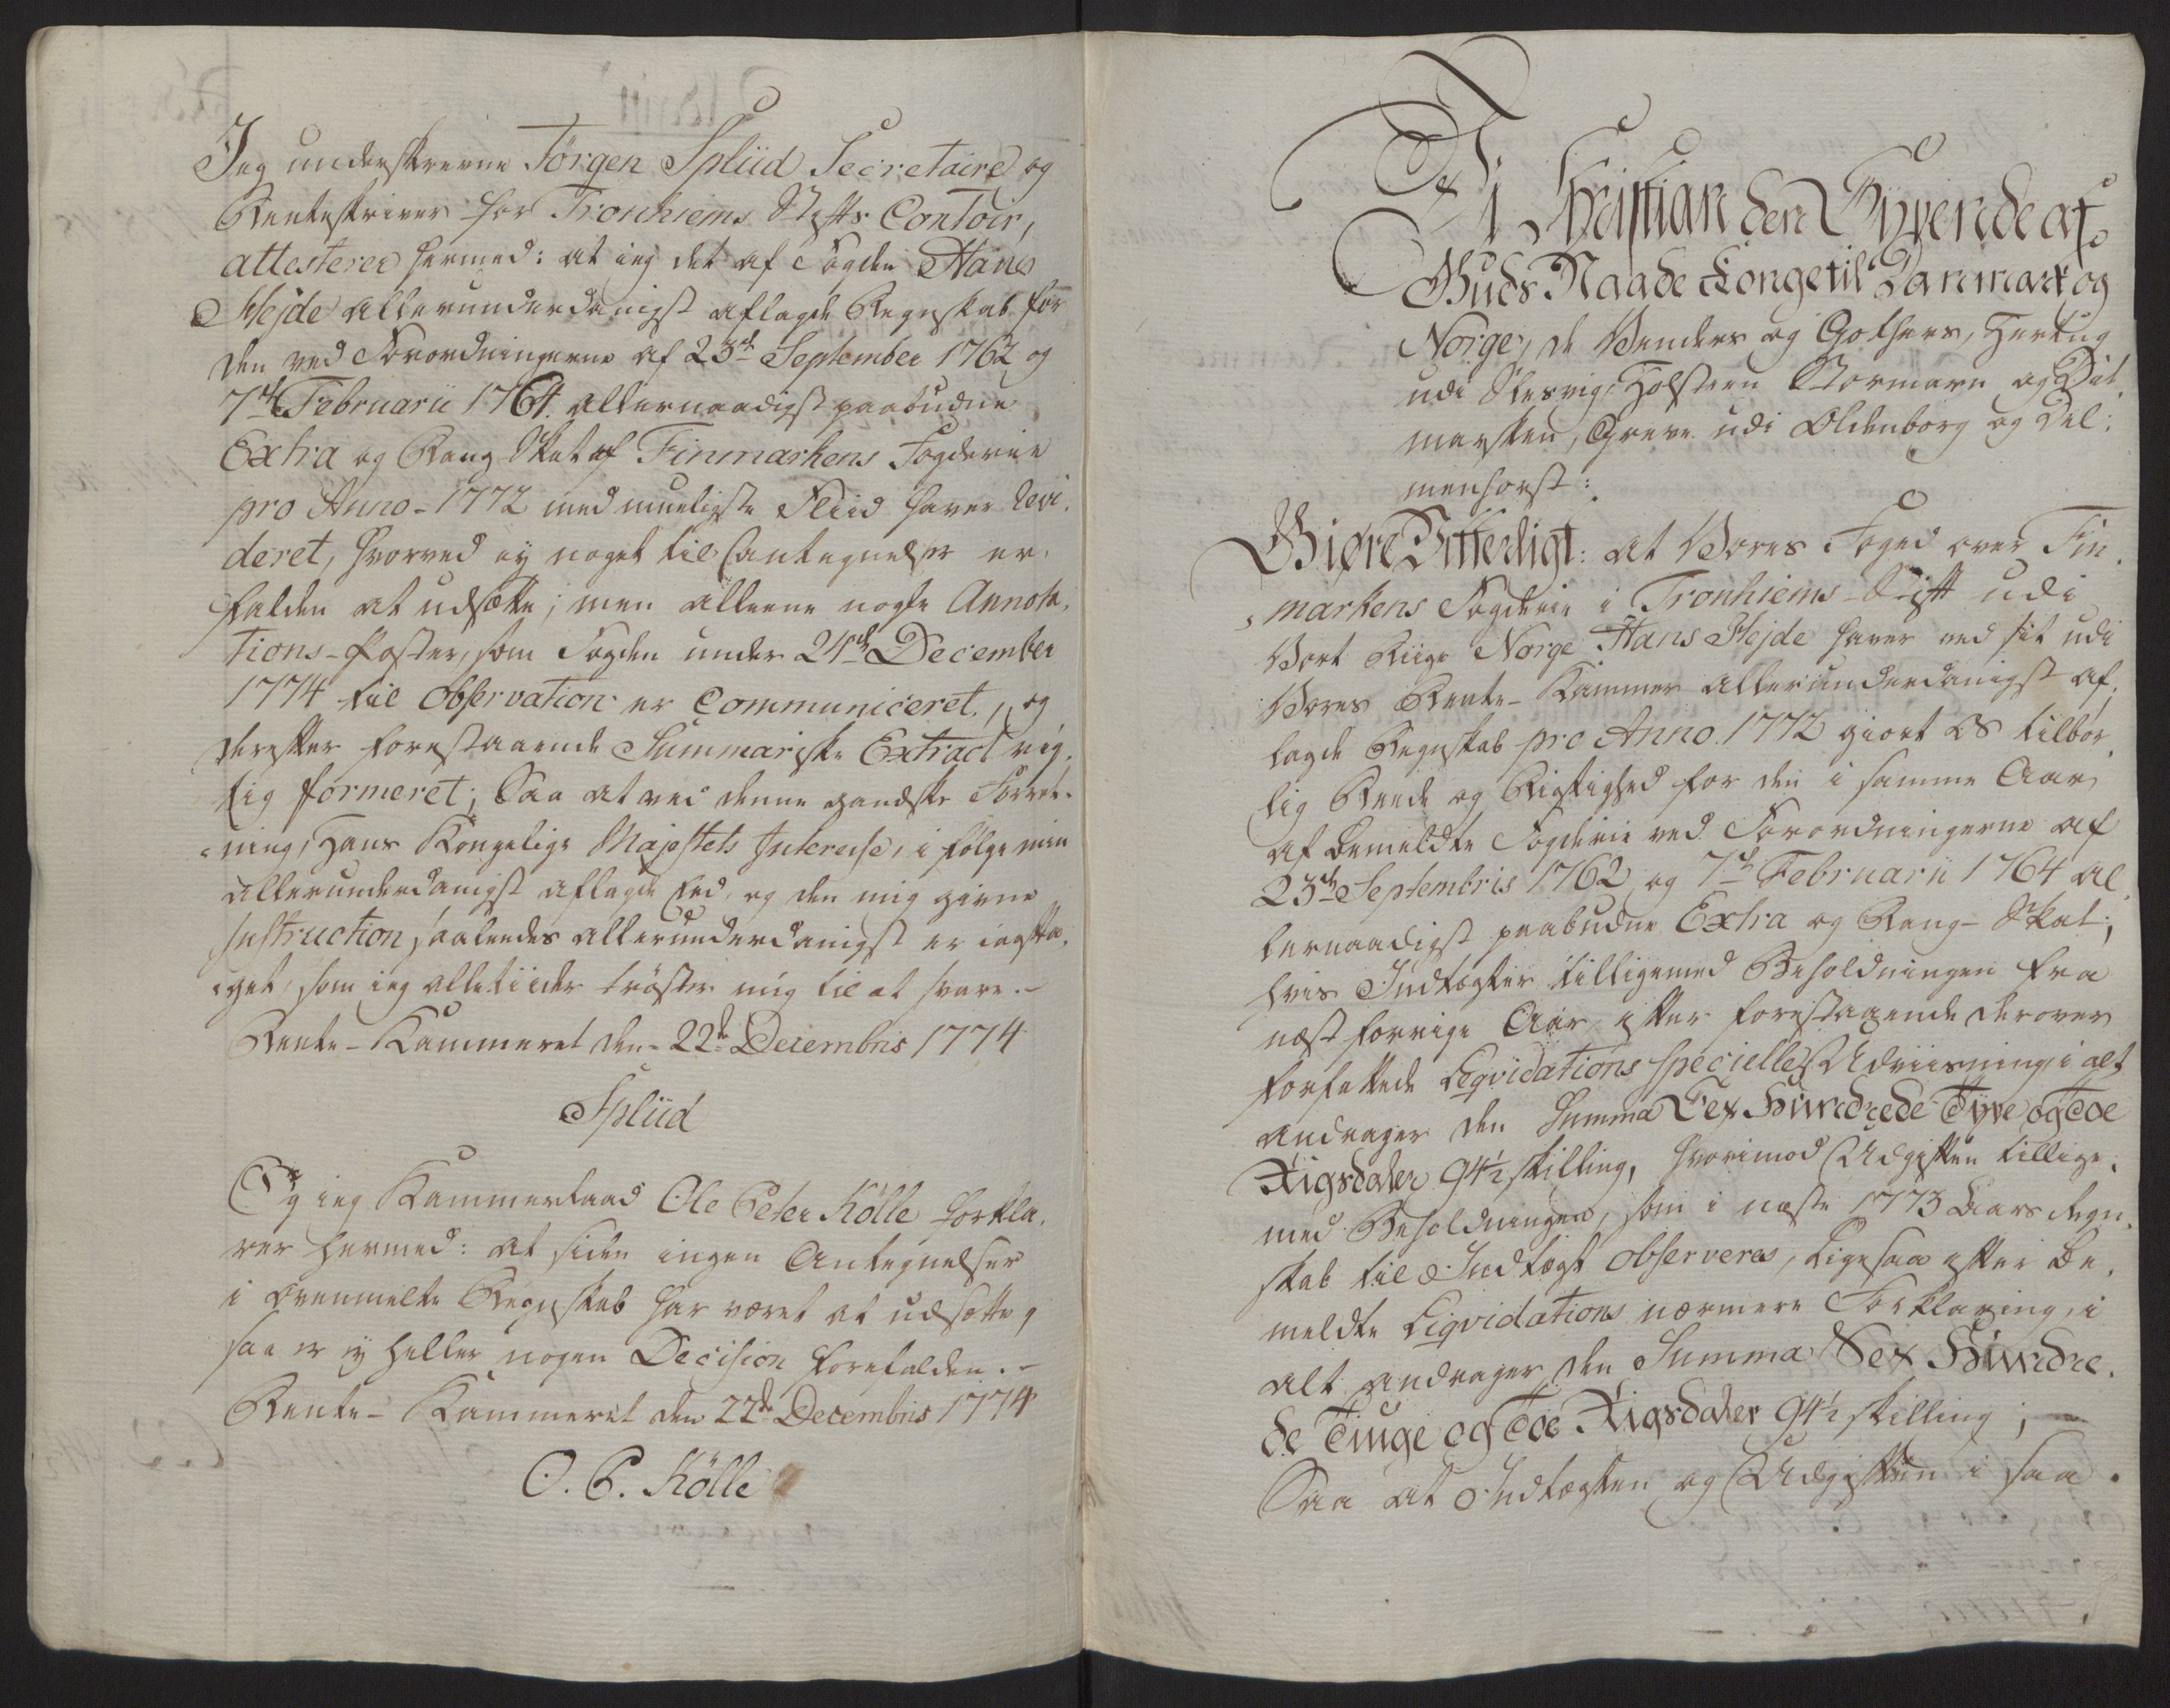 Jeg underskrevne Jörgen Spliid Secretaire og
Renteskriver for Tronhiems Stifts Contoir,
attesterer hermed: at ieg det af Fogden Hans
Hejde allerunderdanigst aflagde Regnskab for
den ved Forordningerne af 23de September 1762 og
7de Februarii 1764. allernaadigst paabudne
Extra og Rang Skat af Finmarkens Fogderie
pro Anno-1772 med mueligste Fliid haver Revi,
deret, hvorved ey noget til Antegnelser er
falden at udsætte; men alleene nogle Annota,
tions-Poster, som Fogden under 21de December
1774 til Observation er Communiceret, og
derefter forestaaende Summariske Extract rig,
tig formeret; Saa at ved denne gandske Forret,
ning, Hans Kongelige Majestets Interesse, i følge min
allerunderdanigst aflagde Eed, og den mig givne
Instruction, saaledes allerunderdanigst er iagtta,
get, som ieg alletiider tröster mig til at svare.-
Rente-Kammeret den-22de Decembris 1774
Spliid
Og ieg Kammerraad Ole Peter Kölle forkla,
rer hermed: at siden ingen Antegnelser
i ovenmelte Regnskab har været at udsætte,
saa er ey heller nogen Decision forefalden.-
Rente-Kammeret den 22de Decembris 1774
O. P. Kölle
Vi Christian den Syvende af
Guds Naade Konge til Danmark og
Norge, de Wenders og Gothers, Hertug
udi Slesvig, Holsteen Stormarn og Dit,
marsken, Greve udi Oldenborg og Del:
menhorst:
Giøre Vitterligt: at Vores Foged over Fin,
markens Fogderie i Tronhiems-Stift udi
Vort Riige Norge Hans Hejde haver ved sit udi
Vores Rente-Kammer allerunderdanigst af,
lagde Regnskab pro Anno.1772 giort Os tilbør,
lig Reede og Rigtighed for den i samme Aar
af bemeldte Fogderie ved Forordningerne af
23de Septembris 1762 og 7de Februarii 1764 al,
lernaadigst paabudne Extra og Rang-Skat;
hvis Indtægter tilligemed Beholdningen fra
næst forrige Aar, efter forestaaende derover
forfattede Liqvidations specielle Udviisning i alt
andrager den Summa Sex Hundrede Tyve og Toe
Rigsdaler 94½ skilling, hvorimod Udgiften tillige,
med Beholdningen, som i næste 1773 Aars Regn,
skab til Indtægt observeres, ligesaa efter be,
meldte Liqvidations nærmere Forklaring, i
alt andrager den Summa Sex Hundre,
de Tiuge og Toe Rigsdaler 94½ skilling;
Saa at Indtægten og Udgiften i saa